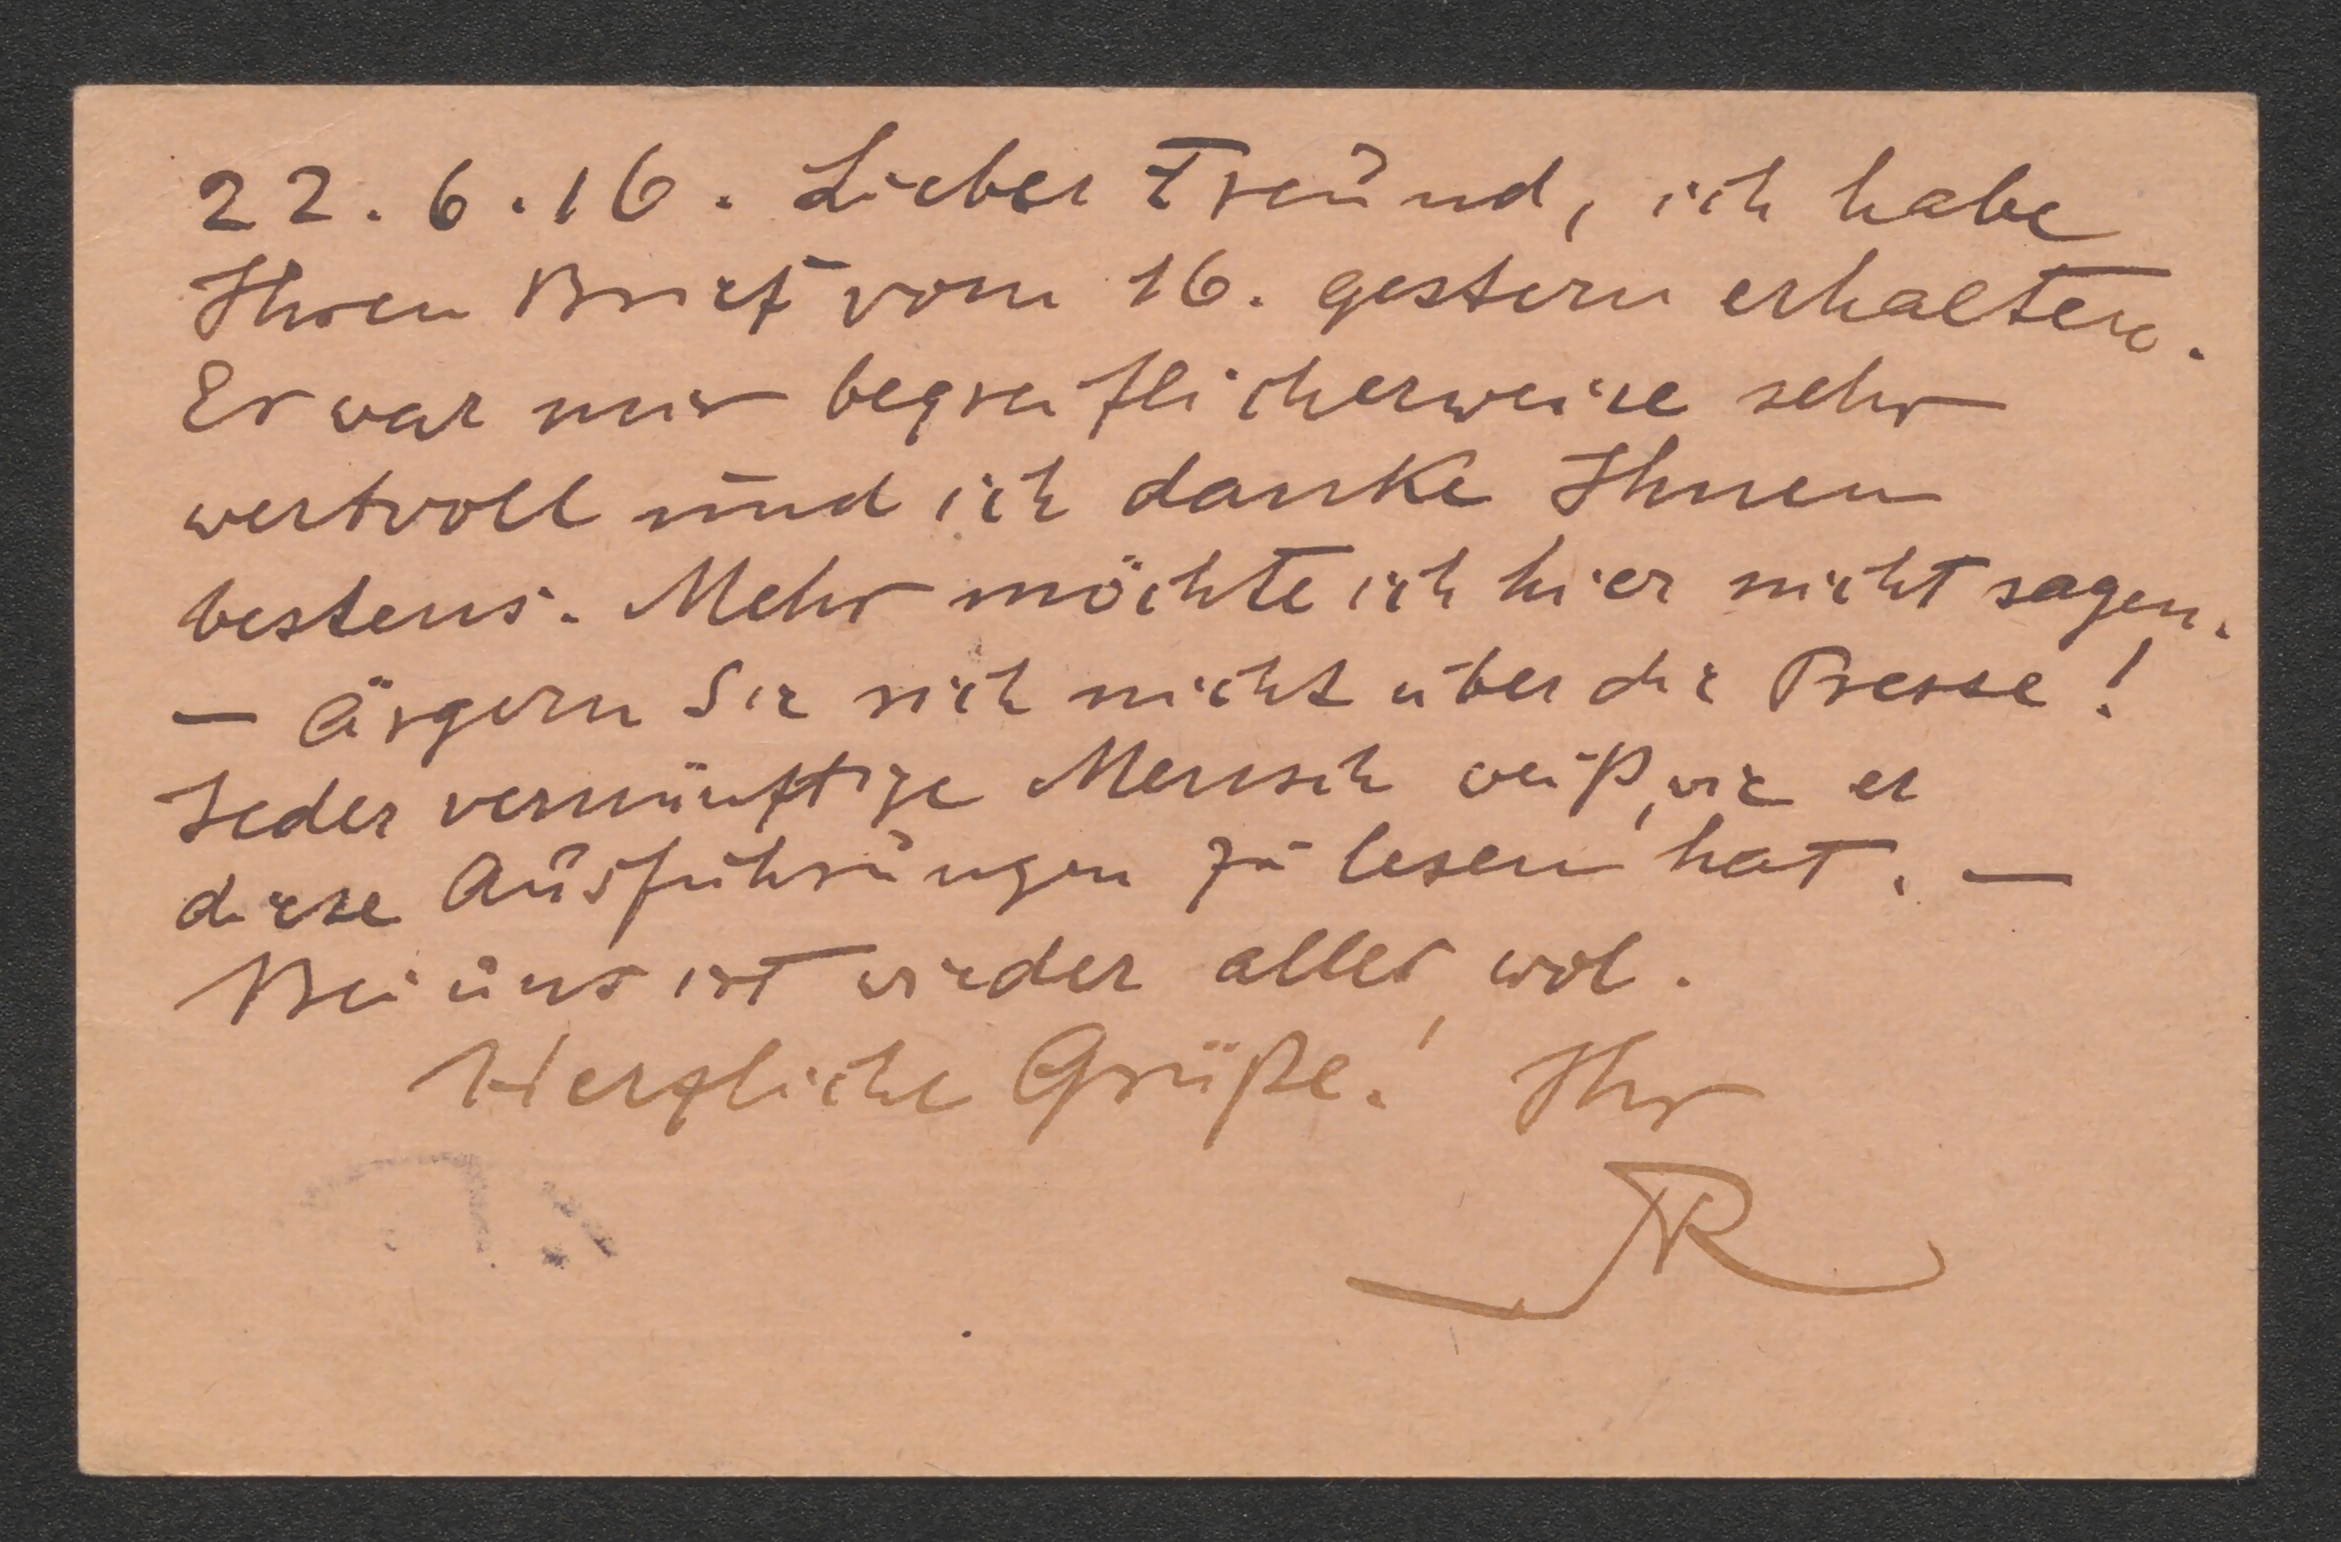 22.6.16. Lieber Freund, ich habe
Ihren Brief vom 16. gestern erhalten.
Er war mir begreiflicherweise sehr
wertvoll und ich danke Ihnen
bestens. Mehr möchte ich hier nicht sagen.
– Ärgern Sie sich nicht über die Presse!
Jeder vernünftige Mensch weiß, wie er
diese Ausführungen zu lesen hat. –
Bei uns ist wieder alles wol.
Herzliche Grüße! Ihr
R